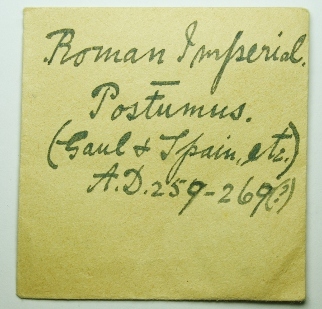 Roman Imperial.
Postumus.
(Gaul & Spain, etc.)
A.D. 259-269(?)